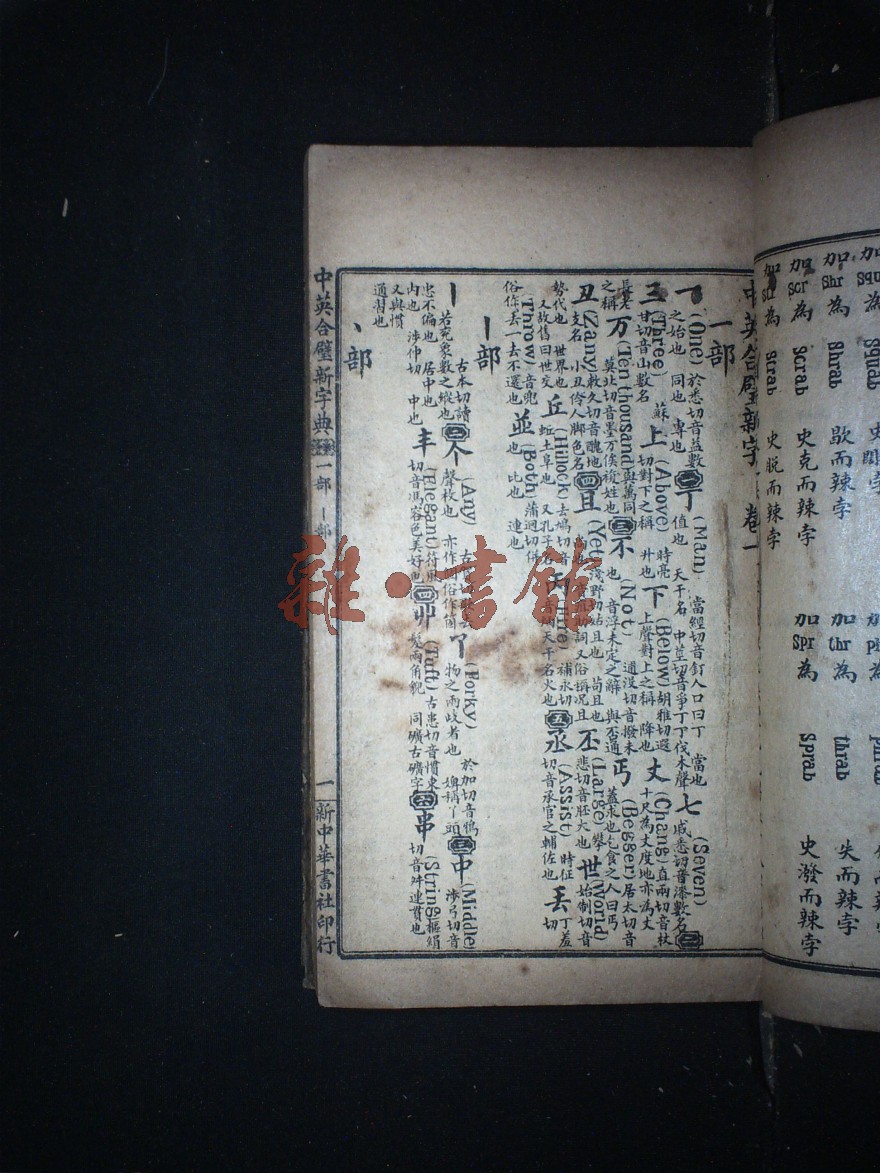 中英合璧新字 卷一
一部
一 (One) 於悉切音益數之始也 同也 專也 丁 (Man) 當經切音釘人口曰丁 當也 值也 天干名 中莖切音爭丁丁伐木聲 七 (Seven) 戚悉切音漆數名
三 (Three) 蘇甘切音山數名 上 (Above) 時亮切對下之稱 升也 下 (Below) 胡雅切遐上聲對上之稱 降也 丈 (Chang) 直兩切音杖十尺為丈度地亦為丈
長老之稱 万 (Ten thousand) 與萬同 莫北切音墨万俟複姓也 不 (Not) 通沒切音撥未也 音浮未定之辭 與否通 丐 (Begger) 居太切音蓋求也乞食之人曰丐
丑 (Zany) 敕久切音醜地支名 小丑伶人脚色名 且 (Yet) 淺野切 姑且也 苟且也 丕 (Large) 攀悲切音胚大也 世 (World) 始制切音
勢代也 世界也 又故舊曰世交 丘 (Hillock) 去鳩切音蚯土阜也 又孔子名 丙 補永切 天干名火也 丞 (Assist) 時征切音承官之輔佐也 丟 丁羞切
(Throw) 音兜俗作丢一去不還也 並 (Both) 蒲迥切併也 比也 連也
丨部
丨 古本切讀若兖象數之縱也 个 (Any) 聲枚也 亦作箇俗作個 丫 (Forky) 於加切音鴉物之兩歧者也 婢稱丫頭 中 (Middle) 涉弓切音
忠不偏也 居中也 內也 涉仲切 中也 丰 (Elegant) 切音馮容色美好也 丱 (Tuft) 古患切音慣束髮兩角貌 同礦古礦字 串 (String) 樞絹切音舛連貫也
又與慣通習也
丶部
中英合璧新字典
一部 丨部
一
新中華書社印行
加 squ 為 squab
加 shr 為 shrab 歇而辣孛
加 scr 為 scrab 史克而辣孛
加 str 為 strab 史脫而辣孛
加 thr 為 thrab 失而辣孛
加 spr 為 sprab 史潑而辣孛
雜·書館